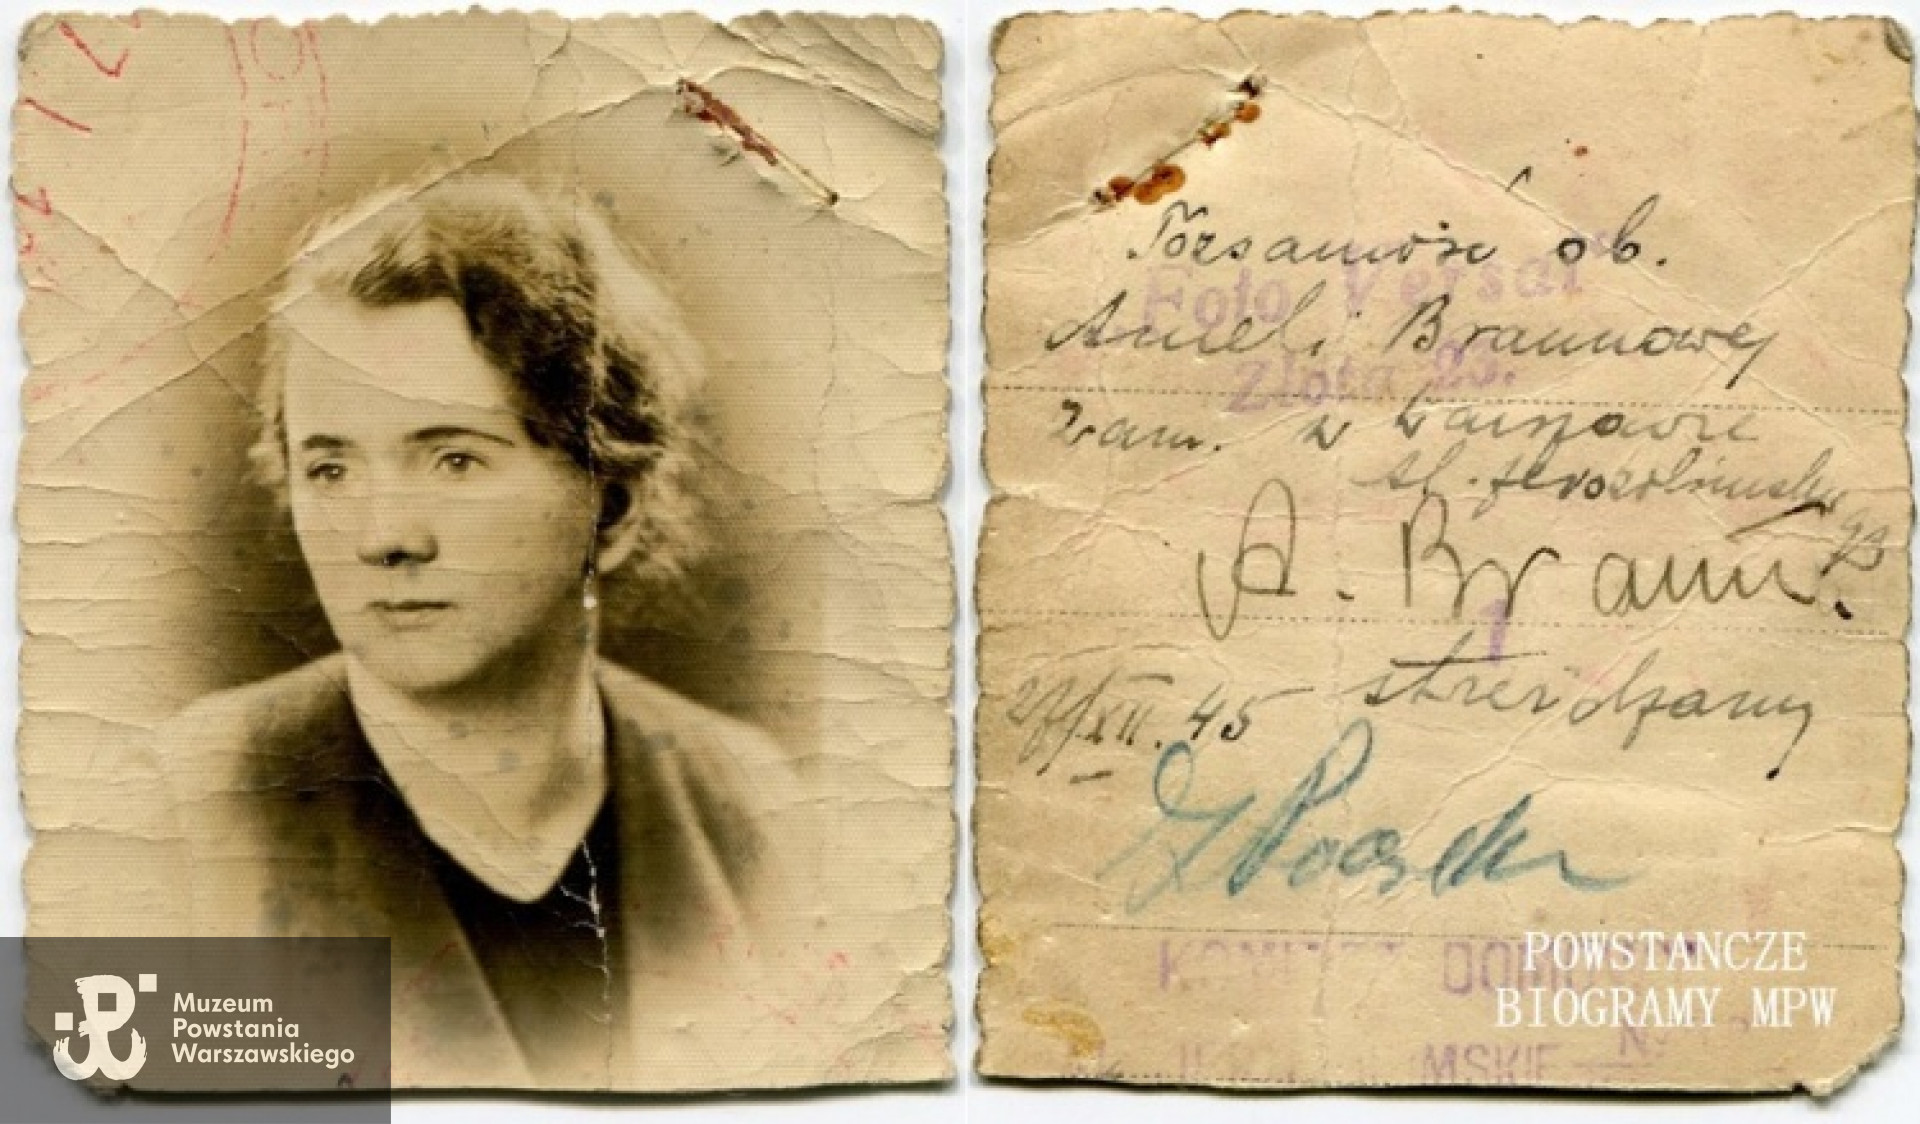 Muzeum
Powstania
Warszawskiego
Tożsamość ob.
Foto "Versal"
Anieli Braunowej
Złota 23.
zam. w Warszawie
Al. Jerozolimska
93
A. Braun.
1
27/XII. 45 stwierdzamy
KOMITET DOMOWY
POWSTAŃCZE
BIOGRAMY MPW
MSKIE N